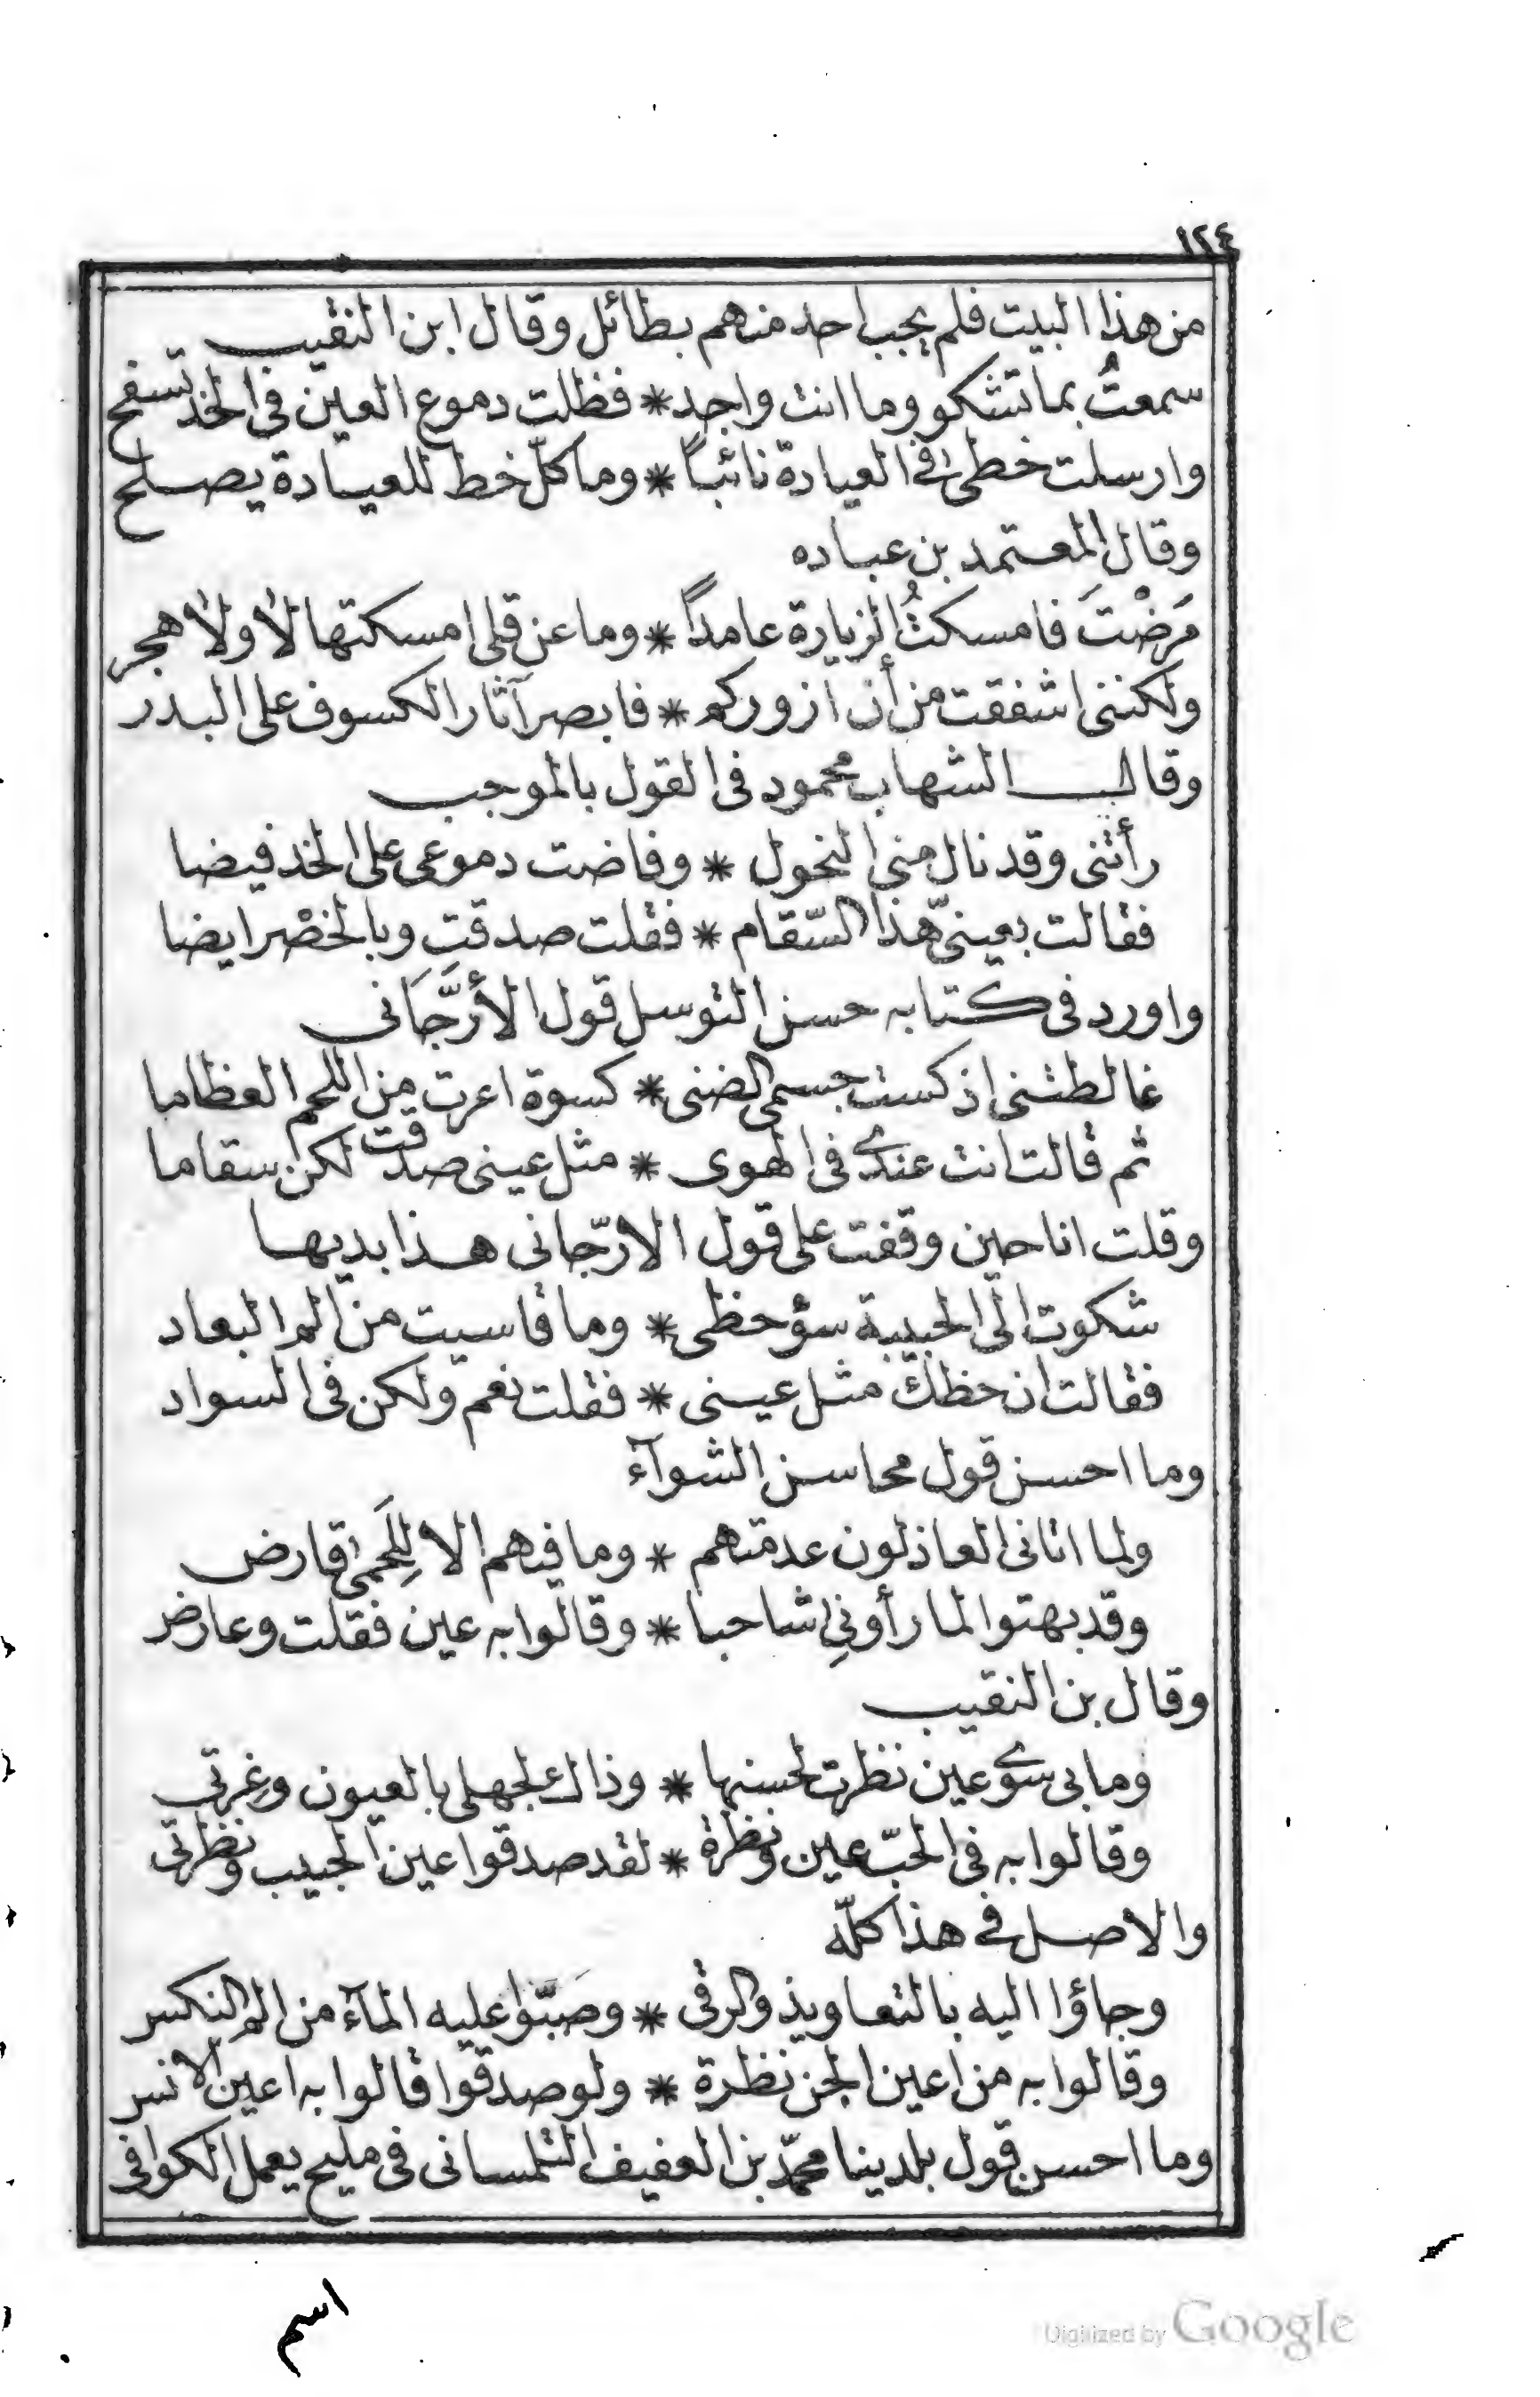 ١٢٤
من هذا البيت فلم يجب احد منهم بطائل وقال ابن النقيب
سمعتُ بما تشكو وما انت واجد * فظلت دموع العين في الخد تسفح
وارسلت خطى في العيادة نائباً * وما كلّ خط للعيادة يصلح
وقال المعتمد بن عباده
مَرَضْتَ فامسكتُ الزيارة عامداً * وما عن قلى امسكتها لأ ولأ هجر
ولكننى اشفقت من أن ازوركم * فابصر آثار الكسوف على البدر
وقال الشهاب محمود فى القول بالموجب
رأتنى وقد نال منى النحول * وفاضت دموعى على الخد فيضا
فقالت بعينىّ هذا السّقام * فقلت صدقت وبالخصْر ايضا
واورد فى كتابه حسن التوسل قول الأرَّجَانى
غالطتنى اذ كست جسمى الضنى * كسوة اعرت من اللحم العظاما
ثم قالت انت عندى فى الهوى * مثل عينى صدقت لكن سقاما
وقلت انا حين وقفت على قول الارّجانى هذا بديها
شكوت الى الحبيبة سؤ حظى * وما قاسيت من الم البعاد
فقالت ان حظك مثل عينى * فقلت نعم ولكن فى السواد
وما احسن قول محاسن الشوآء
ولما اتانى العاذلون عدمتهم * وما فيهم الا لِلَحمى قارض
وقد بهتوا لما رأونِى شاحبا * وقالوا به عين فقلت وعارض
وقال بن النقيب
وما بى سوى عين نظرت لحسنها * وذاك لجهلى بالعيون وغِرتى
وقالوا به فى الحبّ عين ونظرة * لقد صدقوا عين الحبيب ونظرتى
والاصل فى هذا كلّه
وجاؤا اليه بالتعاويذ والرقى * وصَبّوا عليه المآء من الم النكس
وقالوا به من اعين الجن نظرة * ولو صدقوا قالوا به اعين الانس
وما احسن قول بلدينا محمّد بن العفيف التلمسانى فى مليح يعمل الكوافى
اسم
Digitized by Google